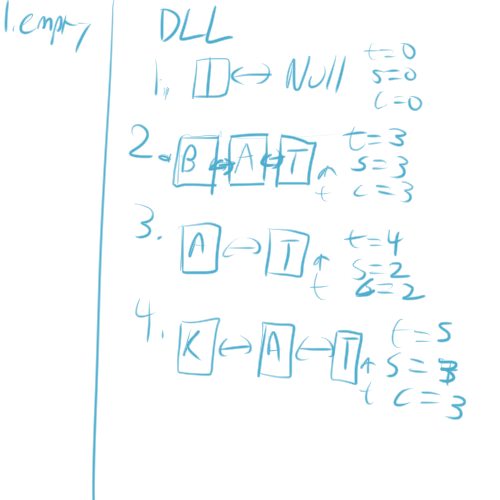 1. empty
DLL
1. [I] ↔ Null t=0 s=0 c=0
2. [B] ↔ [A] ↔ [T] ↑ t t=3 s=3 c=3
3. [A] ↔ [T] ↑ t t=4 s=2 c=2
4. [K] ↔ [A] ↔ [T] ↑ t t=5 s=3 c=3